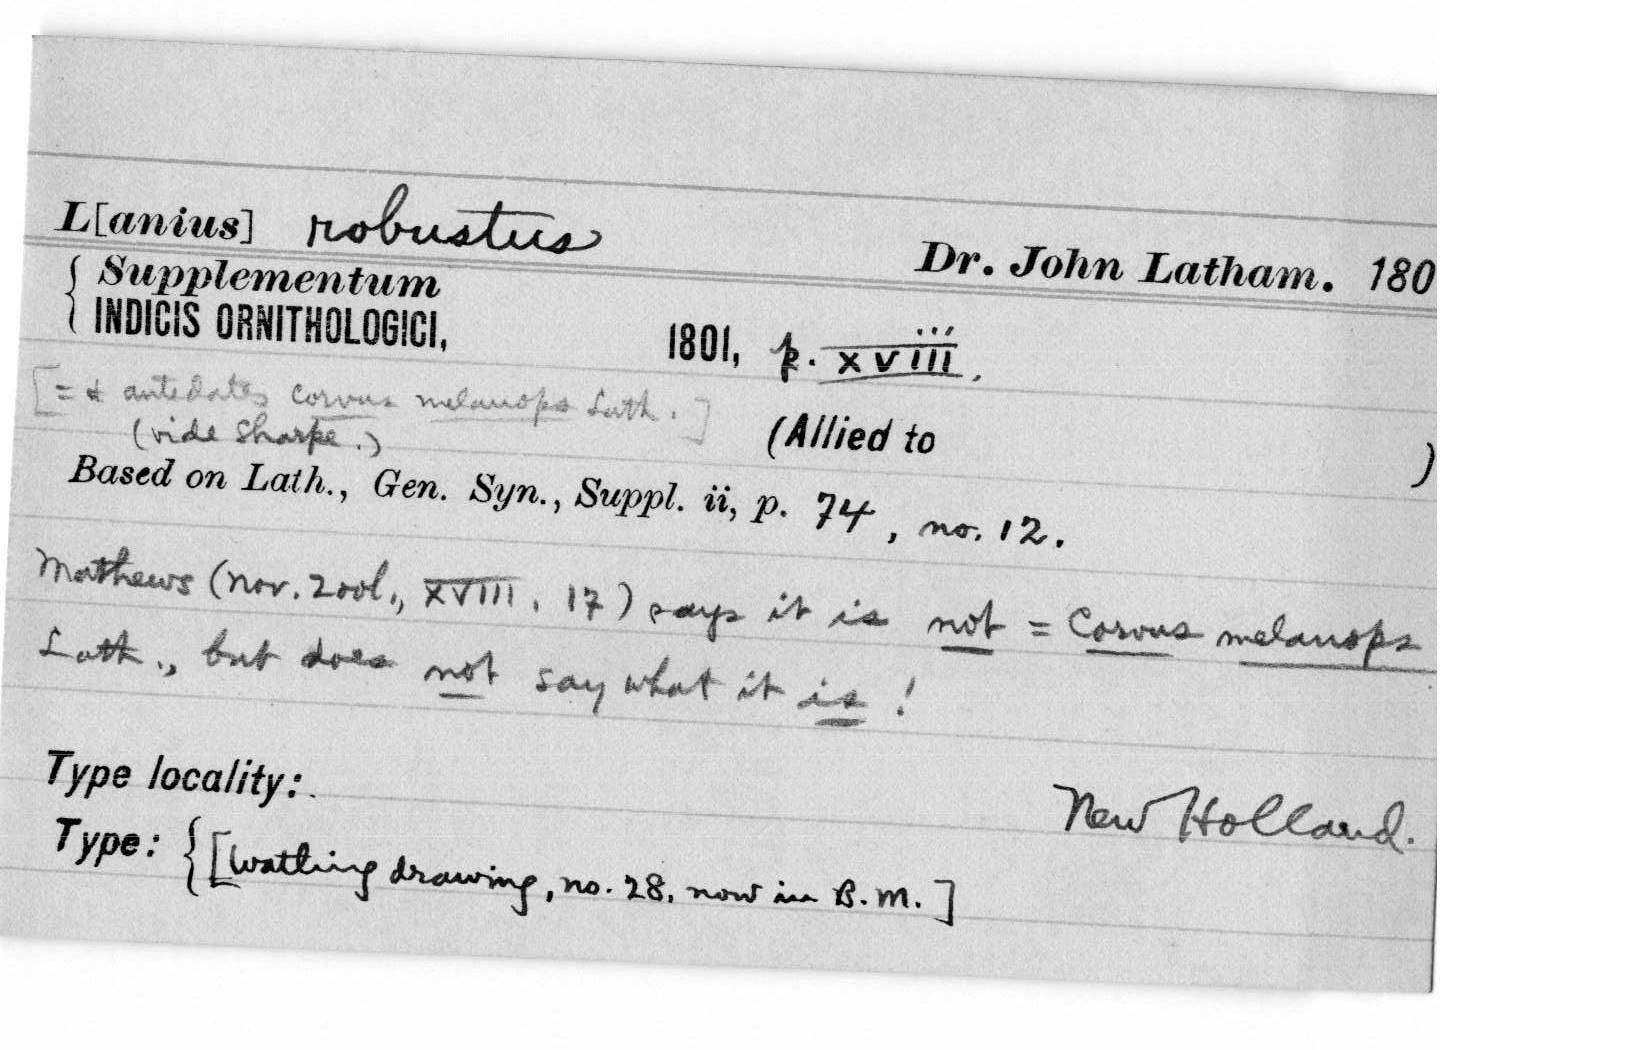 L[anius] robustus Dr. John Latham. 180
{ Supplementum
INDICIS ORNITHOLOGICI, 1801, p. xviii.
[= & antedates Corvus melanops Lath.]
(vide Sharpe.) (Allied to )
Based on Lath., Gen. Syn., Suppl. ii, p. 74, no. 12.
Mathews (Nov. Zool., XVIII, 17) says it is not = Corvus melanops
Lath., but does not say what it is!
Type locality: New Holland.
Type: {[Watling drawing, no. 28, now in B.M.]